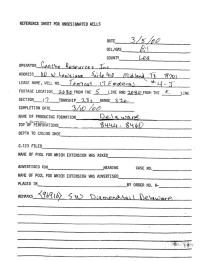 REFERENCE SHEET FOR UNDESIGNATED WELLS
DATE 3/5/00
OIL/GAS Oil
COUNTY Lea
OPERATOR Resources Inc
ADDRESS Suite Midland TX 79701
LEASE NAME, WELL NO. 17 Federal #4-J
FOOTAGE LOCATION, 2080 FROM THE S LINE AND 2080 FROM THE E LINE
SECTION 17 TOWNSHIP 23s RANGE 32e
COMPLETION DATE 3/10/00
NAME OF PRODUCING FORMATION Delaware
TOP OF PERFORATIONS 8444-8460
DEPTH TO CASING SHOE
C-123 FILED
NAME OF POOL FOR WHICH EXTENSION WAS ASKED
ADVERTISED FOR HEARING CASE NO.
NAME OF POOL FOR WHICH EXTENSION WAS ADVERTISED
PLACED IN BY ORDER NO. R-
REMARKS SW Diamondtail Delaware